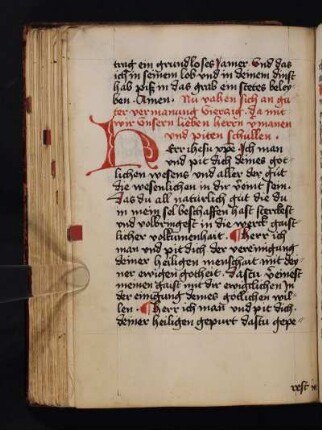 trag ein grundloses Jamer. Und das
ich in seinem lob vnd in deinem dinst
hab pis in das grab ein stetes beley
ben. Amen. Nu vahen sich an gu
ter vermanung vierzig. Da mit
wir vnsern lieben herren vmanen
vnd piten schullen.
HErr ihesu xpe. Ich man
vnd pit dich deines got
lichen wesens vnd aller der gut
die wesenlichen in dir vomt sein.
das du all natürlich gut die du
in mein sel beschaffen hast sterckest
vnd volbringest in die werck gaist
licher volkumenhait. Herr ich
man vnd pit dich der vereinigung
deiner heiligen menschait mit dei
ner ewigen gotheit. dastu vereinest
meinen gaist mit dir ewigklichen in
der einigung deines gotlichen wil
len. Herr ich man vnd pit dich.
deiner heiligen gepurt dastu gepe